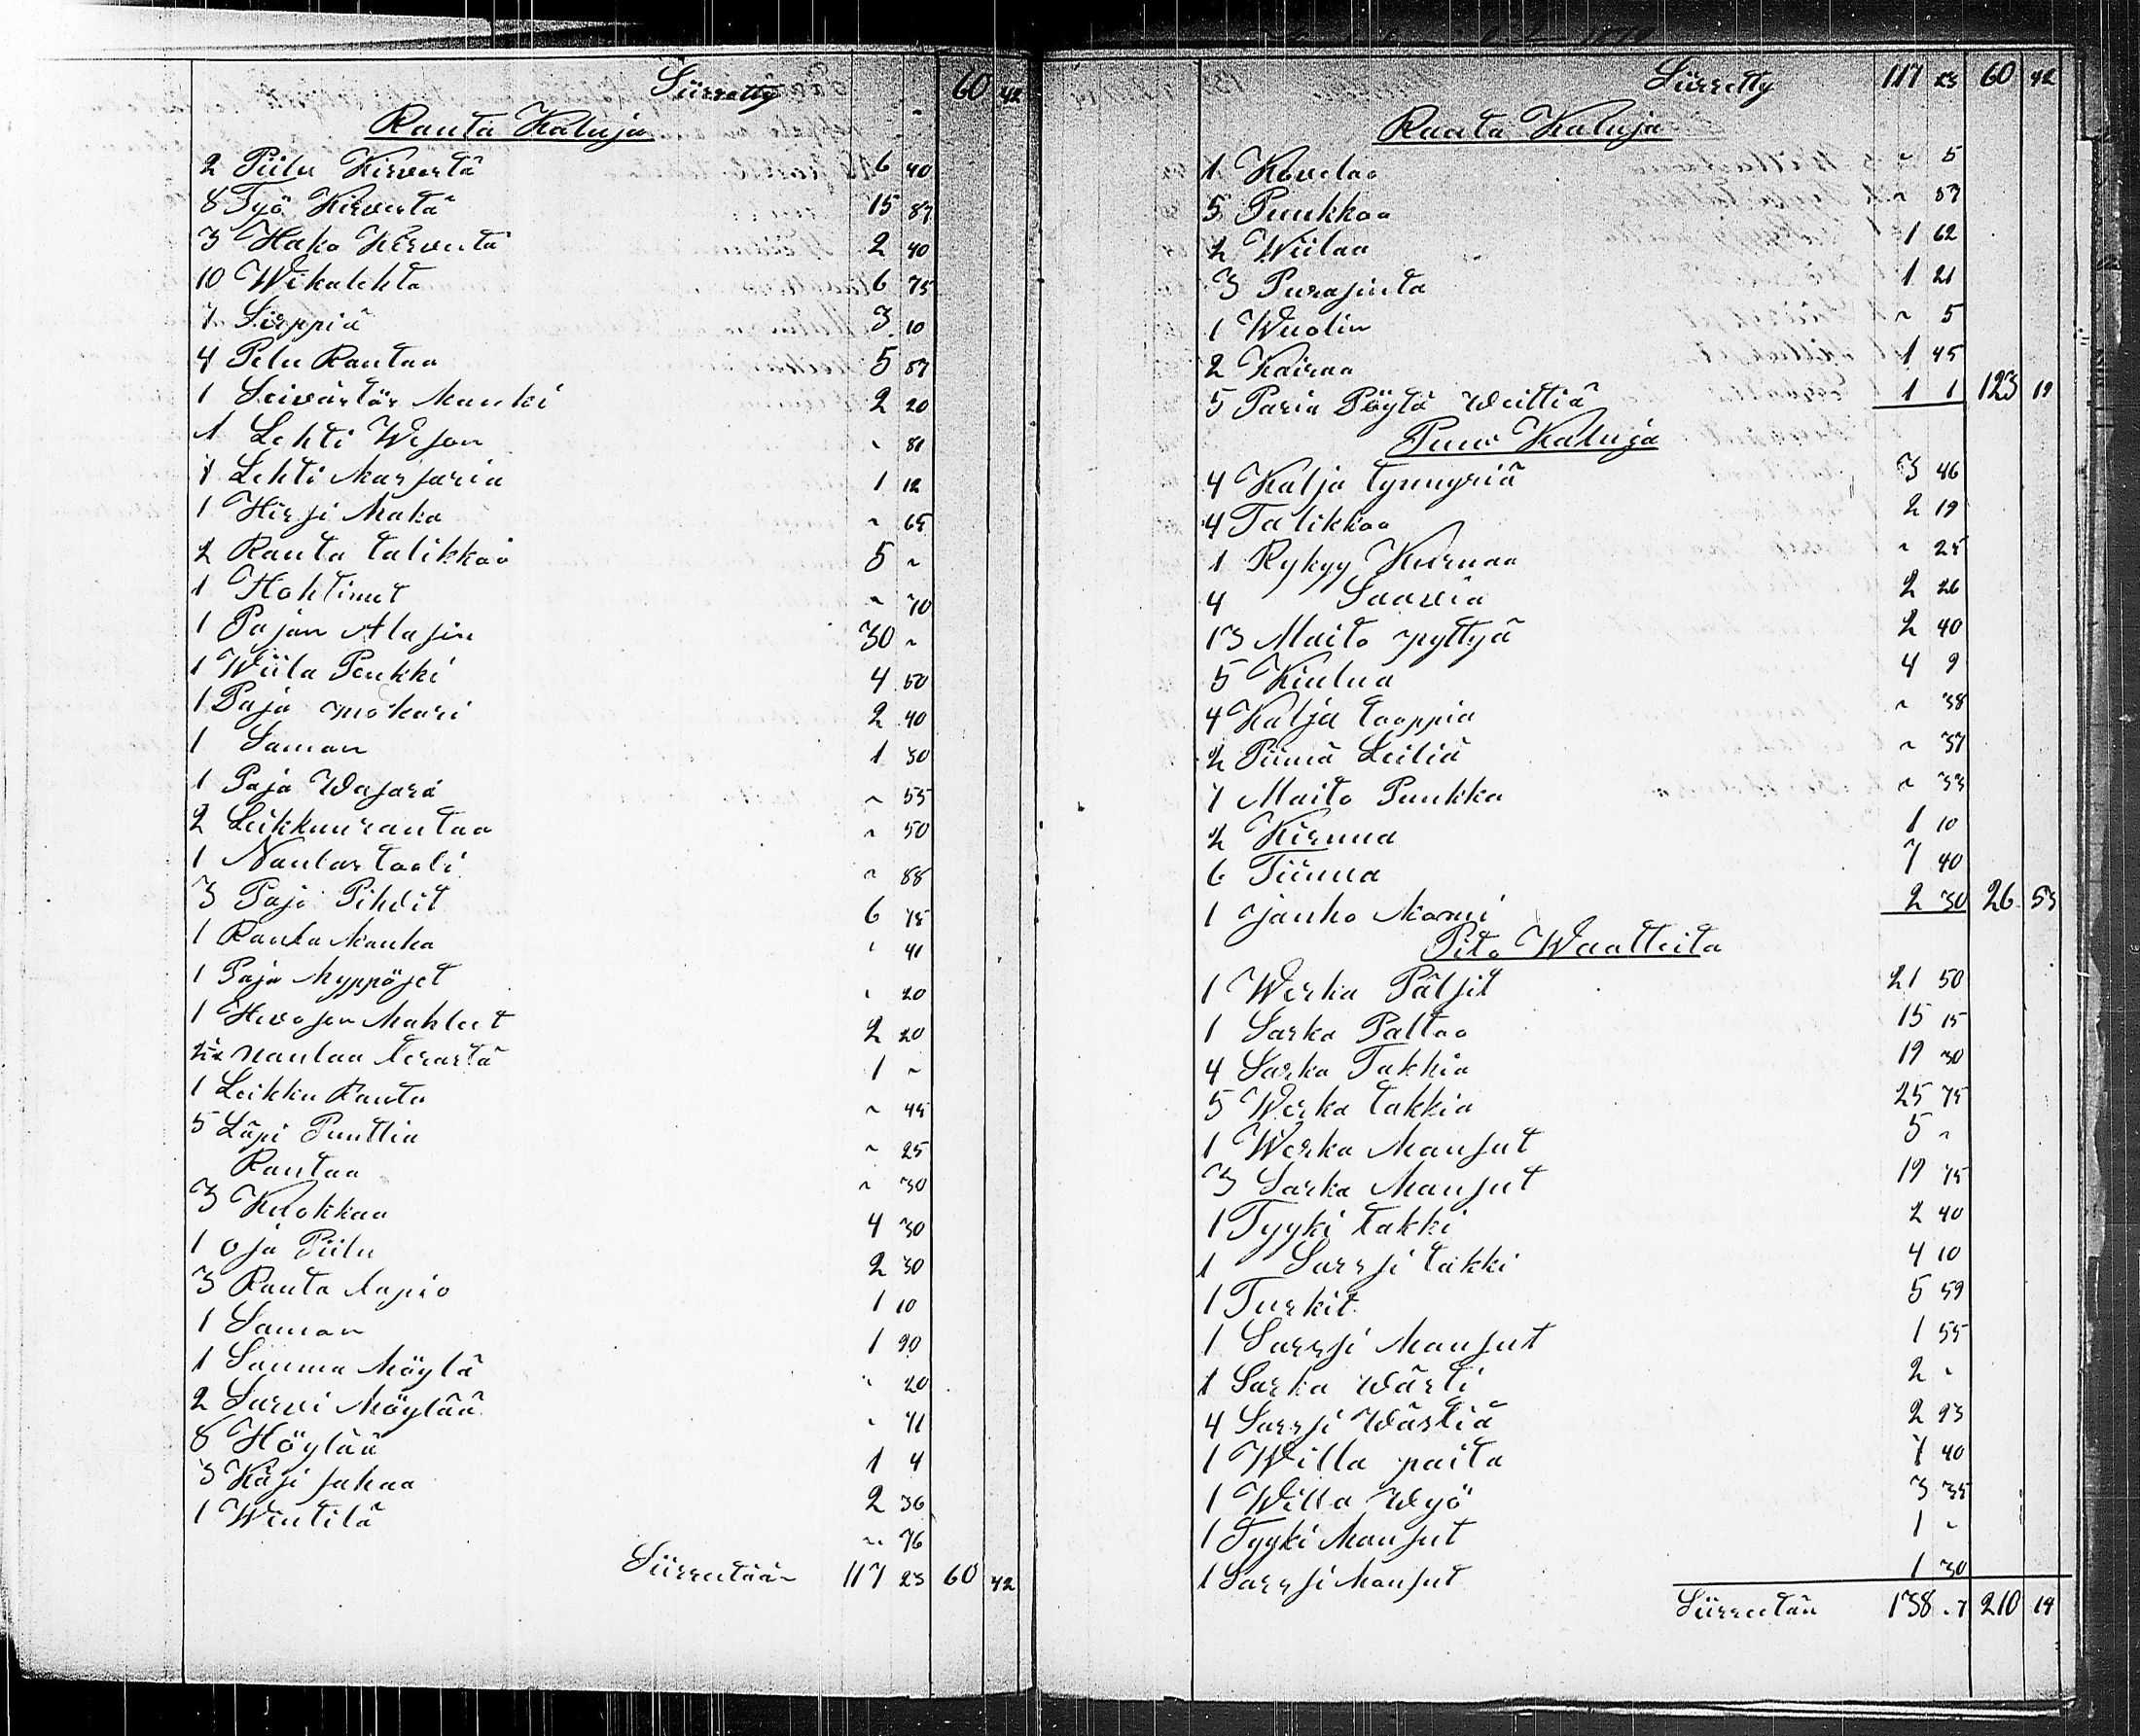 Siirretty 60 42
Rauta Kaluja
2 Piilu Kirvestä 6 40
8 Työ Kirvestä 15 87
3 Hako Kirvestä 2 40
10 Wikatehta 6 75
7 Sirppiä 3 10
4 Pelu Rautaa 5 87
1 Seivästös Manki 2 20
1 Lehti Weson ~ 81
1 Lehti Marsaria 1 12
1 Hirsi Maka ~ 65
2 Rauta talikkoa 5 ~
1 Hohtimet ~ 70
1 Pajan Alasin 30 ~
1 Wiila Penkki 4 50
1 Paja mokari 2 40
1 Saman 1 30
1 Paja Wasara ~ 55
2 Leikkuurautaa ~ 50
1 Naulas taali ~ 88
3 Paja Pihdit 6 75
1 Rauta Kanka ~ 41
1 Paja Myppöset ~ 20
1 Hevosen Mahleet 2 20
naulaa terastä 1 ~
1 Leikku Rauta ~ 45
5 Läpi Puuttia ~ 25
Rautaa ~ 30
3 Kuokkaa 4 30
1 oja Piilu 2 30
3 Rauta lapio 1 10
1 Saman 1 90
1 Sauma Höylä ~ 20
2 Sarvi Höylää ~ 41
8 Höylää 1 4
3 Käsi sahaa 2 36
1 Wintilä ~ 76
Siirretään 117 23 60 42
Siirretty 117 23 60 42
Rauta Kaluja
1 Kovelaa ~ 5
5 Puukkoa ~ 87
2 Wiilaa 1 62
3 Purasinta 1 21
1 Wuolin ~ 5
2 Kairaa 1 45
5 Paria Pöytä Weittiä 1 1 123 19
Puu Kaluja
4 Kalja tynnyriä 3 46
4 Talikkoa 2 19
1 Rykyy Kurnaa ~ 25
4 Saavia 2 26
13 Maito pyttyä 2 40
5 Kiulua 4 9
4 Kalja taoppia ~ 38
2 Piimä Leiliä ~ 37
7 Maito Punkka ~ 33
2 Kirnua 1 10
6 Tiinua 7 40
1 jauho Kanni 2 30 26 53
Pito Waatteita
1 Werka Päljit 21 50
1 Sarka Paltoo 15 15
4 Sarka Takkia 19 30
5 Werka takkia 25 75
1 Werka Mausut 5 ~
3 Sarka Mausut 19 75
1 Tyyki takki 2 40
1 Sarssi takki 4 10
1 Turkit 5 59
1 Sarssi Mausut 1 55
1 Sarka Wästi 2 ~
4 Sarssi Wästiä 2 23
1 Willa paita 7 40
1 Willa Wyö 3 35
1 Tyyki Mausut 1 ~
1 Sarssi Mausut 1 30
Siirretän 138 7 210 14